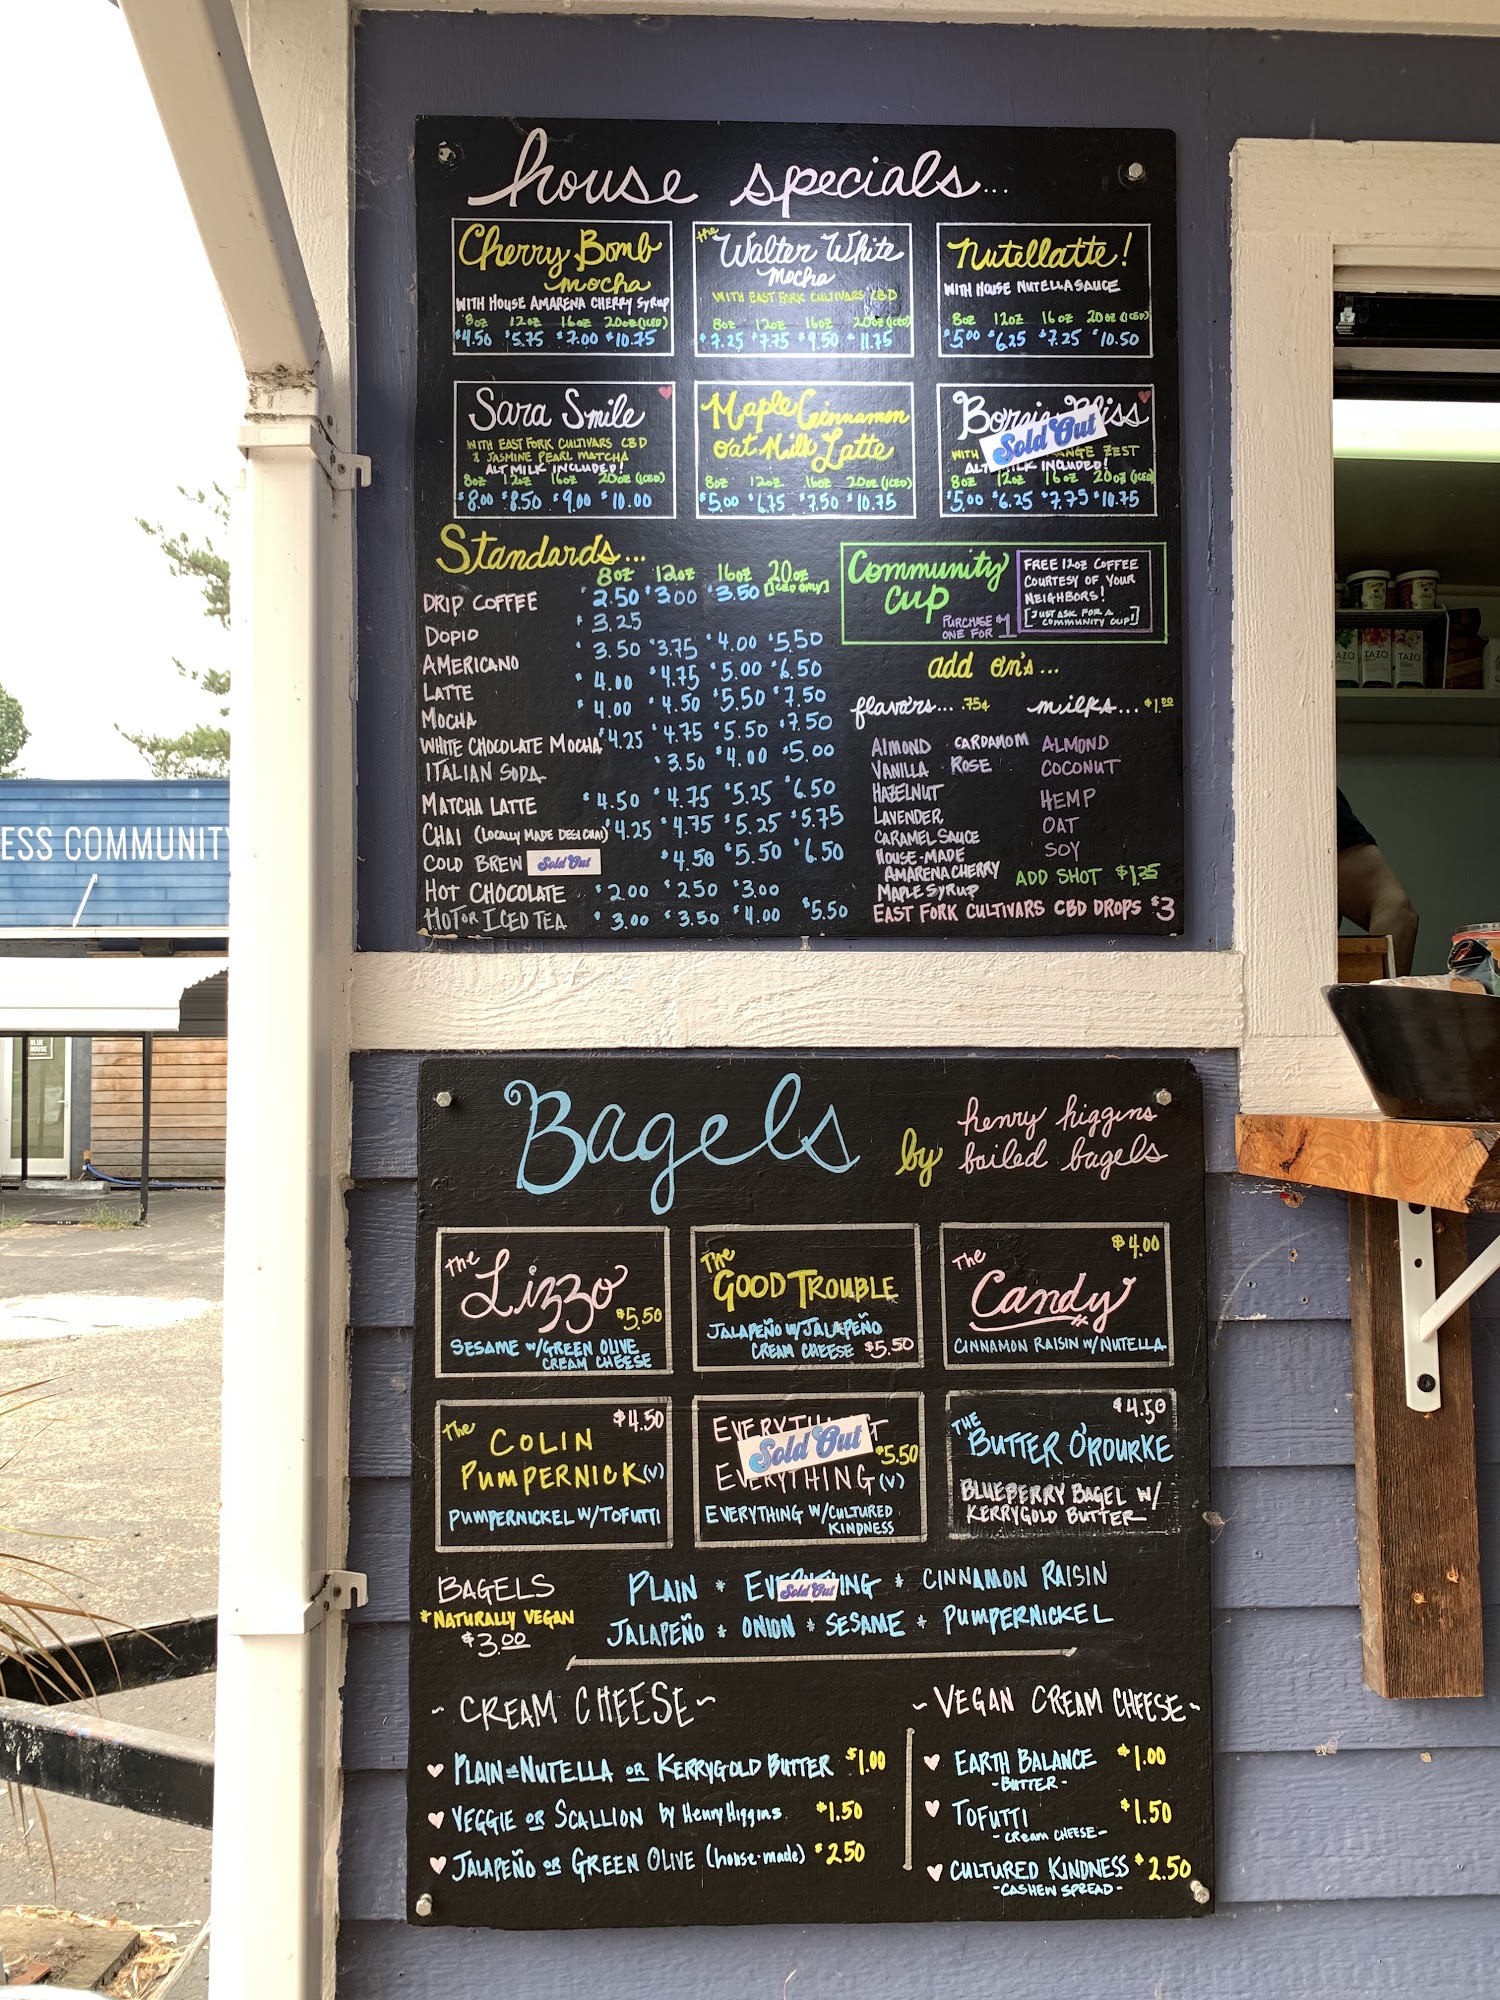 house specials...
Cherry Bomb
mocha
WITH HOUSE AMARENA CHERRY SYRUP
8oz 12oz 16oz 20oz (ICED)
$4.50 $5.75 $7.00 $10.75
the Walter White
Mocha
WITH EAST FORK CULTIVARS CBD
8oz 12oz 16oz 20oz (ICED)
$7.25 $7.75 $9.50 $11.75
Nutellatte!
WITH HOUSE NUTELLA SAUCE
8oz 12oz 16oz 20oz (ICED)
$5.00 $6.25 $7.25 $10.50
Sara Smile
WITH EAST FORK CULTIVARS CBD
& JASMINE PEARL MATCHA
ALT MILK INCLUDED!
8oz 12oz 16oz 20oz (ICED)
$8.00 $8.50 $9.00 $10.00
Maple Cinnamon
Oat Milk Latte
8oz 12oz 16oz 20oz (ICED)
$5.00 $6.75 $7.50 $10.75
Bliss
Sold Out
WITH ZEST
INCLUDED!
8oz 12oz 16oz 20oz (ICED)
$5.00 $6.25 $7.75 $10.75
Standards...
8oz 12oz 16oz 20oz
[ICED ONLY]
DRIP COFFEE $2.50 $3.00 $3.50
DOPIO $3.25
AMERICANO $3.50 $3.75 $4.00 $5.50
LATTE $4.00 $4.75 $5.00 $6.50
MOCHA $4.00 $4.50 $5.50 $7.50
WHITE CHOCOLATE MOCHA $4.25 $4.75 $5.50 $7.50
ITALIAN SODA $3.50 $4.00 $5.00
MATCHA LATTE $4.50 $4.75 $5.25 $6.50
CHAI (LOCALLY MADE DESI CHAI) $4.25 $4.75 $5.25 $5.75
COLD BREW Sold Out $4.50 $5.50 $6.50
HOT CHOCOLATE $2.00 $2.50 $3.00
HOT OR ICED TEA $3.00 $3.50 $4.00 $5.50
Community
Cup
PURCHASE
ONE FOR $1
FREE 12oz COFFEE
COURTESY OF YOUR
NEIGHBORS!
[JUST ASK FOR A
COMMUNITY CUP!]
add on's...
flavors... .75¢
ALMOND CARDAMOM
VANILLA ROSE
HAZELNUT
LAVENDER
CARAMEL SAUCE
HOUSE-MADE
AMARENA CHERRY
MAPLE SYRUP
milks... $1.00
ALMOND
COCONUT
HEMP
OAT
SOY
ADD SHOT $1.25
EAST FORK CULTIVARS CBD DROPS $3
TAZO TAZO TAZO
ESS COMMUNITY
BLUE
HOUSE
Bagels by henry higgins
boiled bagels
the Lizzo
$5.50
SESAME W/GREEN OLIVE
CREAM CHEESE
The GOOD TROUBLE
JALAPEÑO W/JALAPEÑO
CREAM CHEESE $5.50
$4.00
The Candy
CINNAMON RAISIN W/NUTELLA
$4.50
the COLIN
PUMPERNICK (V)
PUMPERNICKEL W/TOFUTTI
Sold Out
$5.50
EVERYTHING (V)
EVERYTHING W/CULTURED
KINDNESS
$4.50
THE BUTTER O'ROURKE
BLUEBERRY BAGEL W/
KERRYGOLD BUTTER
BAGELS
*NATURALLY VEGAN
$3.00
PLAIN * EVERYTHING * CINNAMON RAISIN
Sold Out
JALAPEÑO * ONION * SESAME * PUMPERNICKEL
~ CREAM CHEESE ~
PLAIN OR NUTELLA OR KERRYGOLD BUTTER $1.00
VEGGIE OR SCALLION by Henry Higgins $1.50
JALAPEÑO OR GREEN OLIVE (house-made) $2.50
~ VEGAN CREAM CHEESE ~
EARTH BALANCE $1.00
- BUTTER -
TOFUTTI $1.50
- CREAM CHEESE -
CULTURED KINDNESS $2.50
- CASHEW SPREAD -